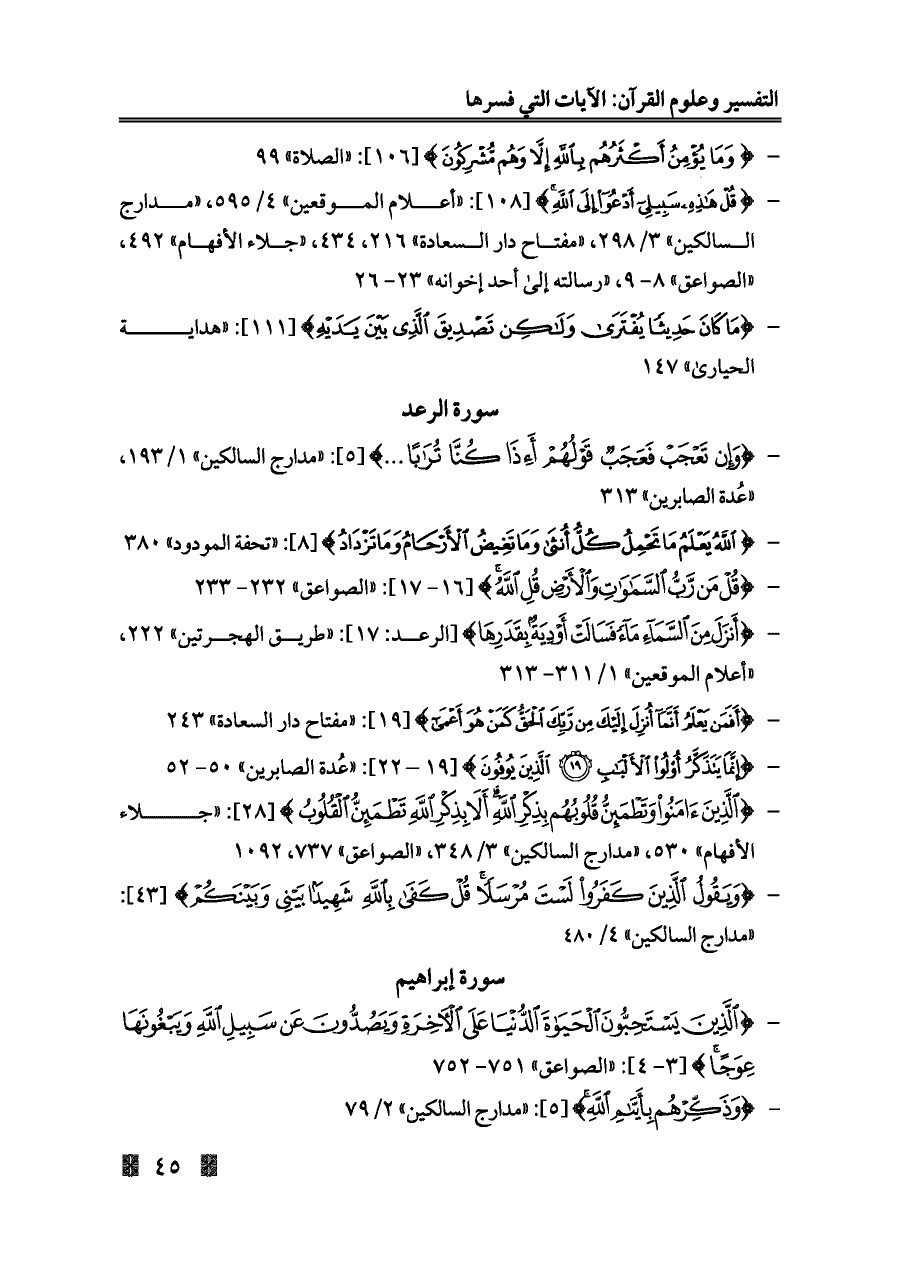 التفسير وعلوم القرآن: الآيات التي فسرها
- ﴿وَمَا يُؤْمِنُ أَكْثَرُهُم بِٱللَّهِ إِلَّا وَهُم مُّشْرِكُونَ﴾ [١٠٦]: «الصلاة» ٩٩
- ﴿قُلْ هَٰذِهِۦ سَبِيلِىٓ أَدْعُوٓا۟ إِلَى ٱللَّهِ ۚ﴾ [١٠٨]: «أعلام الموقعين» ٤/ ٥٩٥، «مدارج
السالكين» ٣/ ٢٩٨، «مفتاح دار السعادة» ٢١٦، ٤٣٤، «جلاء الأفهام» ٤٩٢،
«الصواعق» ٨- ٩، «رسالته إلىٰ أحد إخوانه» ٢٣- ٢٦
- ﴿مَا كَانَ حَدِيثًا يُفْتَرَىٰ وَلَٰكِن تَصْدِيقَ ٱلَّذِى بَيْنَ يَدَيْهِ﴾ [١١١]: «هداية
الحيارىٰ» ١٤٧
سورة الرعد
- ﴿وَإِن تَعْجَبْ فَعَجَبٌ قَوْلُهُمْ أَءِذَا كُنَّا تُرَٰبًا ...﴾ [٥]: «مدارج السالكين» ١/ ١٩٣،
«عُدة الصابرين» ٣١٣
- ﴿ٱللَّهُ يَعْلَمُ مَا تَحْمِلُ كُلُّ أُنثَىٰ وَمَا تَغِيضُ ٱلْأَرْحَامُ وَمَا تَزْدَادُ﴾ [٨]: «تحفة المودود» ٣٨٠
- ﴿قُلْ مَن رَّبُّ ٱلسَّمَٰوَٰتِ وَٱلْأَرْضِ قُلِ ٱللَّهُ ۚ﴾ [١٦- ١٧]: «الصواعق» ٢٣٢- ٢٣٣
- ﴿أَنزَلَ مِنَ ٱلسَّمَآءِ مَآءً فَسَالَتْ أَوْدِيَةٌۢ بِقَدَرِهَا﴾ [الرعد: ١٧]: «طريق الهجرتين» ٢٢٢،
«أعلام الموقعين» ١/ ٣١١- ٣١٣
- ﴿أَفَمَن يَعْلَمُ أَنَّمَآ أُنزِلَ إِلَيْكَ مِن رَّبِّكَ ٱلْحَقُّ كَمَنْ هُوَ أَعْمَىٰٓ﴾ [١٩]: «مفتاح دار السعادة» ٢٤٣
- ﴿إِنَّمَا يَتَذَكَّرُ أُو۟لُوا۟ ٱلْأَلْبَٰبِ ١٩ ٱلَّذِينَ يُوفُونَ﴾ [١٩ -٢٢]: «عُدة الصابرين» ٥٠- ٥٢
- ﴿ٱلَّذِينَ ءَامَنُوا۟ وَتَطْمَئِنُّ قُلُوبُهُم بِذِكْرِ ٱللَّهِ ۗ أَلَا بِذِكْرِ ٱللَّهِ تَطْمَئِنُّ ٱلْقُلُوبُ﴾ [٢٨]: «جلاء
الأفهام» ٥٣٠، «مدارج السالكين» ٣/ ٣٤٨، «الصواعق» ٧٣٧، ١٠٩٢
- ﴿وَيَقُولُ ٱلَّذِينَ كَفَرُوا۟ لَسْتَ مُرْسَلًا ۚ قُلْ كَفَىٰ بِٱللَّهِ شَهِيدًۢا بَيْنِى وَبَيْنَكُمْ﴾ [٤٣]:
«مدارج السالكين» ٤/ ٤٨٠
سورة إبراهيم
- ﴿ٱلَّذِينَ يَسْتَحِبُّونَ ٱلْحَيَوٰةَ ٱلدُّنْيَا عَلَى ٱلْءَاخِرَةِ وَيَصُدُّونَ عَن سَبِيلِ ٱللَّهِ وَيَبْغُونَهَا
عِوَجًا ۚ﴾ [٣- ٤]: «الصواعق» ٧٥١- ٧٥٢
- ﴿وَذَكِّرْهُم بِأَيَّىٰمِ ٱللَّهِ ۚ﴾ [٥]: «مدارج السالكين» ٢/ ٧٩
٤٥